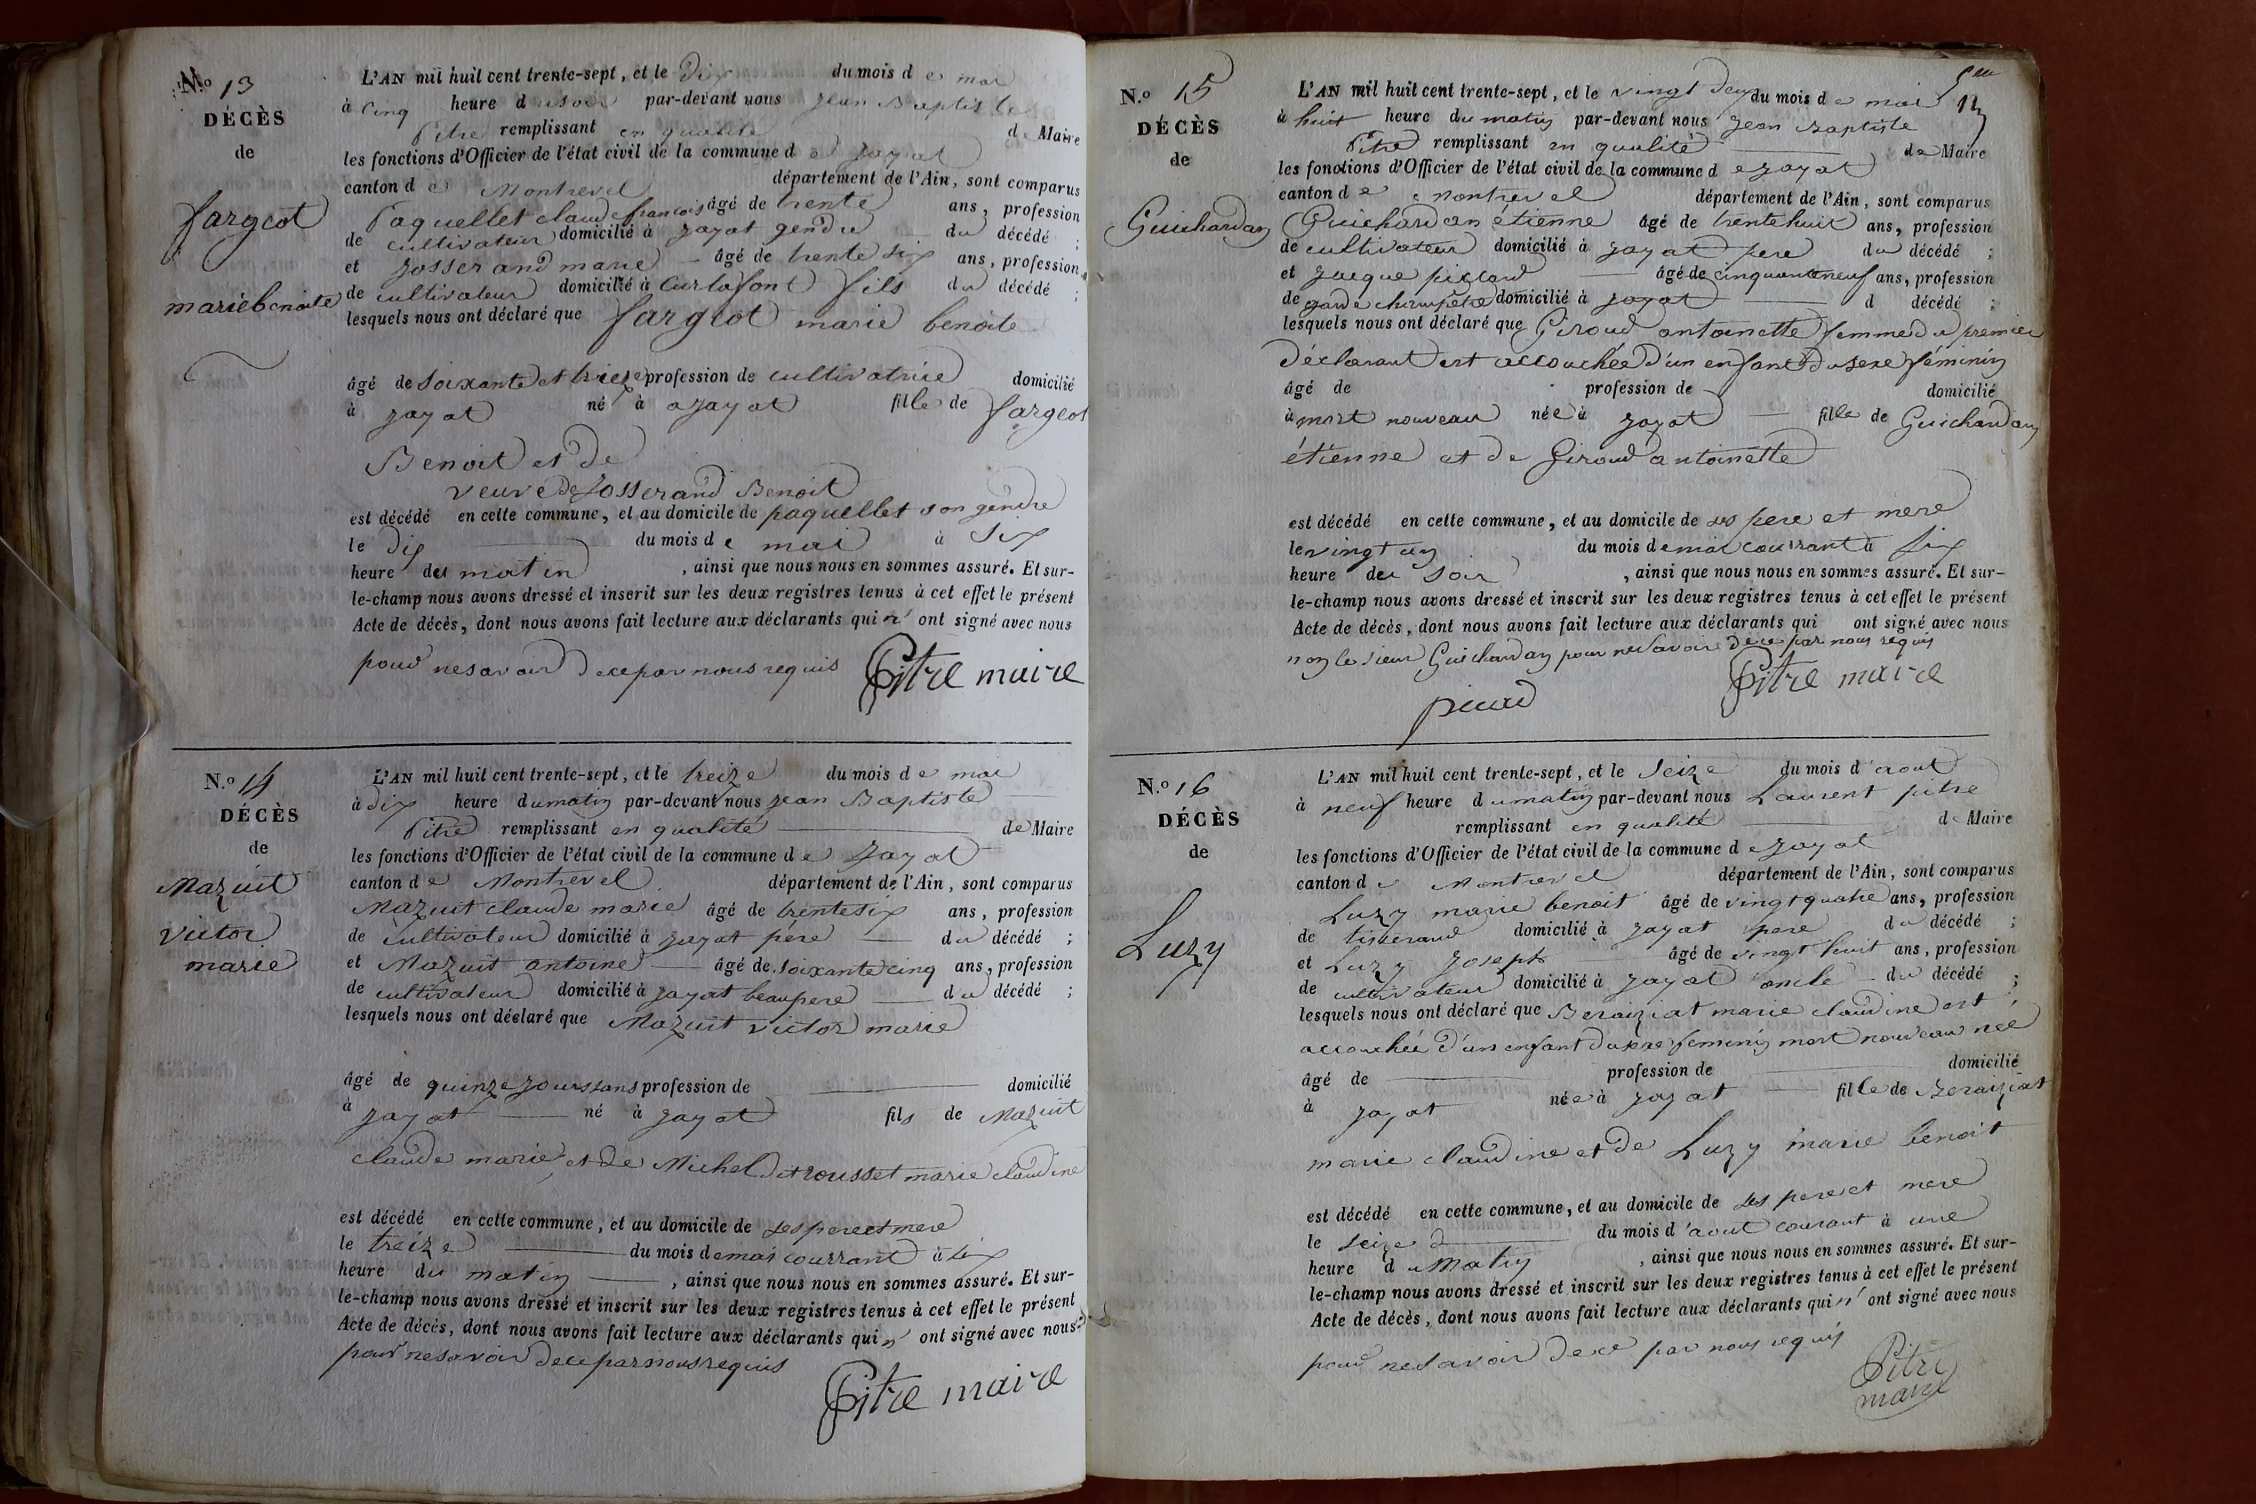 N.º 13
DÉCÈS
de
fargeot
marie benoite
L'AN mil huit cent trente-sept, et le dix du mois de mai
à cinq heure du soir par-devant nous jean Baptiste
Pitre remplissant en qualité de Maire
les fonctions d'Officier de l'état civil de la commune de jayat
canton de Montrevel département de l'Ain, sont comparus
Paquellet claude francois âgé de trente ans, profession
de cultivateur domicilié à jayat gendre du décédé ;
et josserand marie âgé de trente six ans, profession
de cultivateur domicilié à Curtafont fils du décédé ;
lesquels nous ont déclaré que fargeot marie benoite
âgé de soixante et treize profession de cultivatrice domicilié
à jayat né à a jayat fille de fargeot
Benoit et de
veuve de josserand Benoit
est décédé en cette commune, et au domicile de paquellet son gendre
le dix du mois de mai à six
heure du matin , ainsi que nous nous en sommes assuré. Et sur-
le-champ nous avons dressé et inscrit sur les deux registres tenus à cet effet le présent
Acte de décès, dont nous avons fait lecture aux déclarants qui n' ont signé avec nous
pour ne savoir de ce par nous requis Pitre maire
N.º 14
DÉCÈS
de
Mazuit
victor
marie
L'AN mil huit cent trente-sept, et le treize du mois de mai
à dix heure du matin par-devant nous jean Baptiste
Pitre remplissant en qualité de Maire
les fonctions d'Officier de l'état civil de la commune de jayat
canton de Montrevel département de l'Ain, sont comparus
Mazuit claude marie âgé de trente six ans, profession
de cultivateur domicilié à jayat père du décédé ;
et Mazuit antoine âgé de soixante cinq ans, profession
de cultivateur domicilié à jayat beau pere du décédé ;
lesquels nous ont déclaré que Mazuit victor marie
âgé de quinze jours sans profession de domicilié
à jayat né à jayat fils de Mazuit
claude marie et de Michel dit rousset marie claudine
est décédé en cette commune, et au domicile de ses pere et mere
le treize du mois de mai courrant à six
heure du matin , ainsi que nous nous en sommes assuré. Et sur-
le-champ nous avons dressé et inscrit sur les deux registres tenus à cet effet le présent
Acte de décès, dont nous avons fait lecture aux déclarants qui n' ont signé avec nous
pour ne savoir de ce par nous requis
Pitre maire
N.º 15
DÉCÈS
de
Guichardan
L'AN mil huit cent trente-sept, et le vingt deux du mois de mai
à huit heure du matin par-devant nous jean Baptiste
Pitre remplissant en qualité de Maire
les fonctions d'Officier de l'état civil de la commune de jayat
canton de Montrevel département de l'Ain, sont comparus
Guichardan étienne âgé de trente huit ans, profession
de cultivateur domicilié à jayat pere du décédé ;
et jacque âgé de cinquante neuf ans, profession
de garde champêtre domicilié à jayat d décédé ;
lesquels nous ont déclaré que Giroud antoinette femme du premier
déclarant est accouchée d'un enfant du sexe féminin
âgé de profession de domicilié
à mort nouveau née à jayat fille de Guichardan
étienne et de Giroud antoinette
est décédé en cette commune, et au domicile de ses pere et mere
le vingt un du mois de mai courrant à six
heure du soir , ainsi que nous nous en sommes assuré. Et sur-
le-champ nous avons dressé et inscrit sur les deux registres tenus à cet effet le présent
Acte de décès, dont nous avons fait lecture aux déclarants qui ont signé avec nous
non le sieur Guichardan pour ne savoir de ce par nous requis
Pitre maire
picard
N.º 16
DÉCÈS
de
Luzy
L'AN mil huit cent trente-sept, et le seize du mois d'aout
à neuf heure du matin par-devant nous Laurent pitre
remplissant en qualité de Maire
les fonctions d'Officier de l'état civil de la commune de jayat
canton de Montrevel département de l'Ain, sont comparus
Luzy marie benoit âgé de vingt quatre ans, profession
de tisserand domicilié à jayat pere du décédé ;
et Luzy joseph âgé de vingt huit ans, profession
de cultivateur domicilié à jayat oncle du décédé ;
lesquels nous ont déclaré que Beraiziat marie claudine est
accouchée d'un enfant du sexe feminin mort nouveau née
âgé de profession de domicilié
à jayat née à jayat fille de Beraiziat
marie claudine et de Luzy marie benoit
est décédé en cette commune, et au domicile de ses pere et mere
le seize du mois d'aout courant à une
heure du matin , ainsi que nous nous en sommes assuré. Et sur-
le-champ nous avons dressé et inscrit sur les deux registres tenus à cet effet le présent
Acte de décès, dont nous avons fait lecture aux déclarants qui n' ont signé avec nous
pour ne savoir de ce par nous requis
Pitre
maire